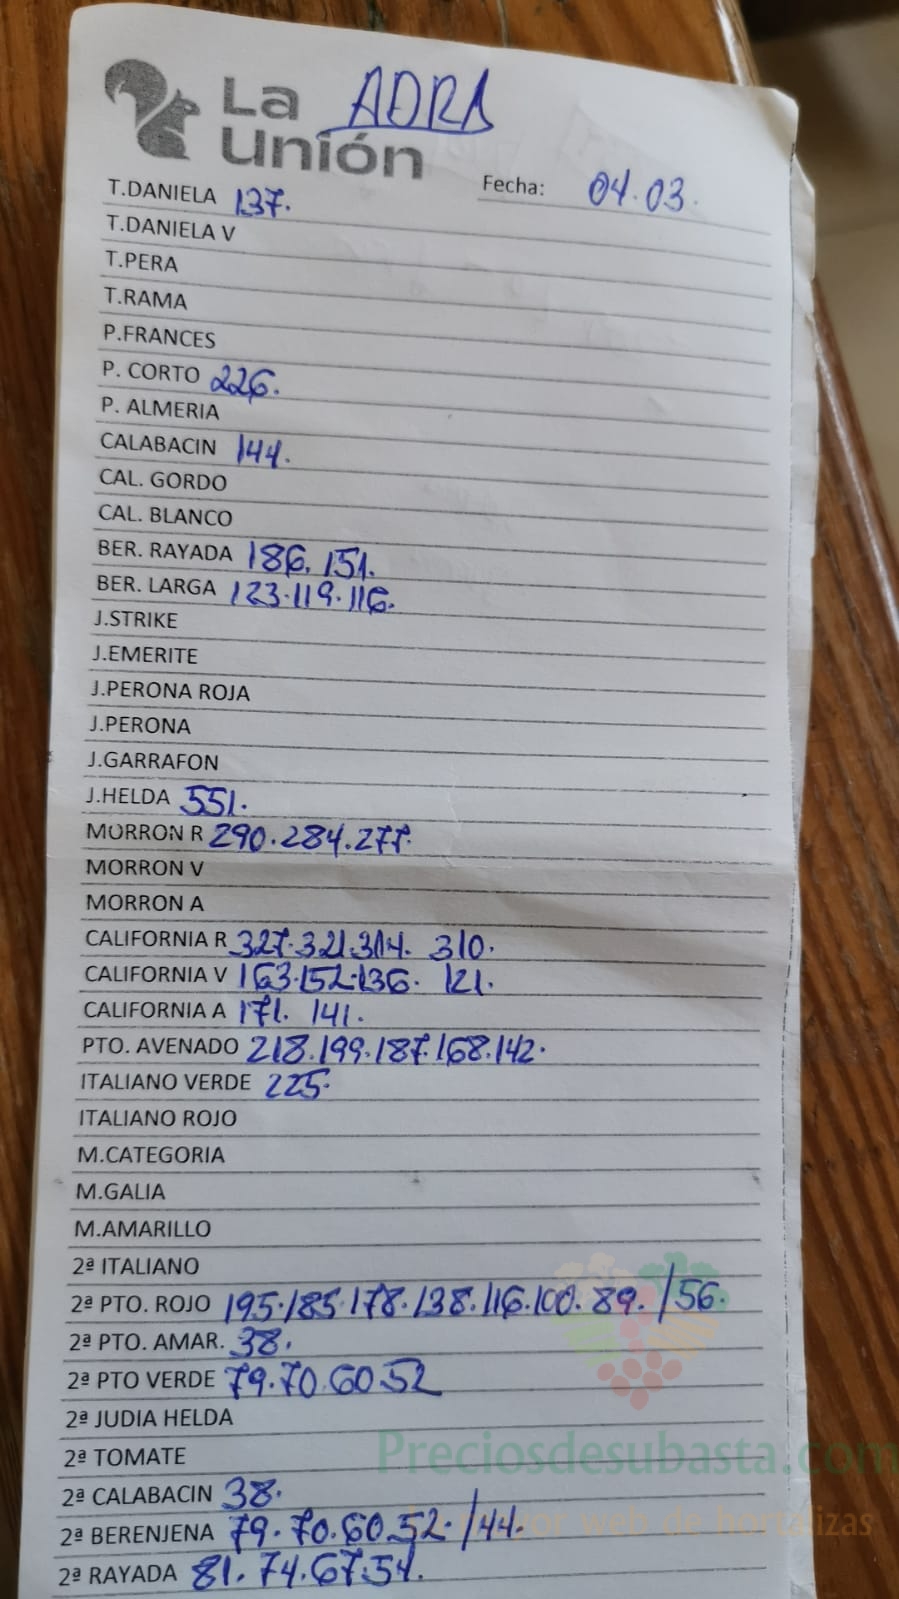 La Unión ADRA
Fecha: 04.03.
T.DANIELA 137.
T.DANIELA V
T.PERA
T.RAMA
P.FRANCES
P. CORTO 226.
P. ALMERIA
CALABACIN 144.
CAL. GORDO
CAL. BLANCO
BER. RAYADA 186. 151.
BER. LARGA 123.119.116.
J.STRIKE
J.EMERITE
J.PERONA ROJA
J.PERONA
J.GARRAFON
J.HELDA 551.
MORRON R 290.284.277.
MORRON V
MORRON A
CALIFORNIA R 327.321.314. 310.
CALIFORNIA V 163.152.136. 121.
CALIFORNIA A 171. 141.
PTO. AVENADO 218.199.187.168.142.
ITALIANO VERDE 225.
ITALIANO ROJO
M.CATEGORIA
M.GALIA
M.AMARILLO
2ª ITALIANO
2ª PTO. ROJO 195.185.178.138.116.100.89./56.
2ª PTO. AMAR. 38.
2ª PTO VERDE 79.70.60.52
2ª JUDIA HELDA
2ª TOMATE
Preciosdesubasta.com
2ª CALABACIN 38.
2ª BERENJENA 79.70.60.52./44.
web de hortalizas
2ª RAYADA 81.74.67.54.